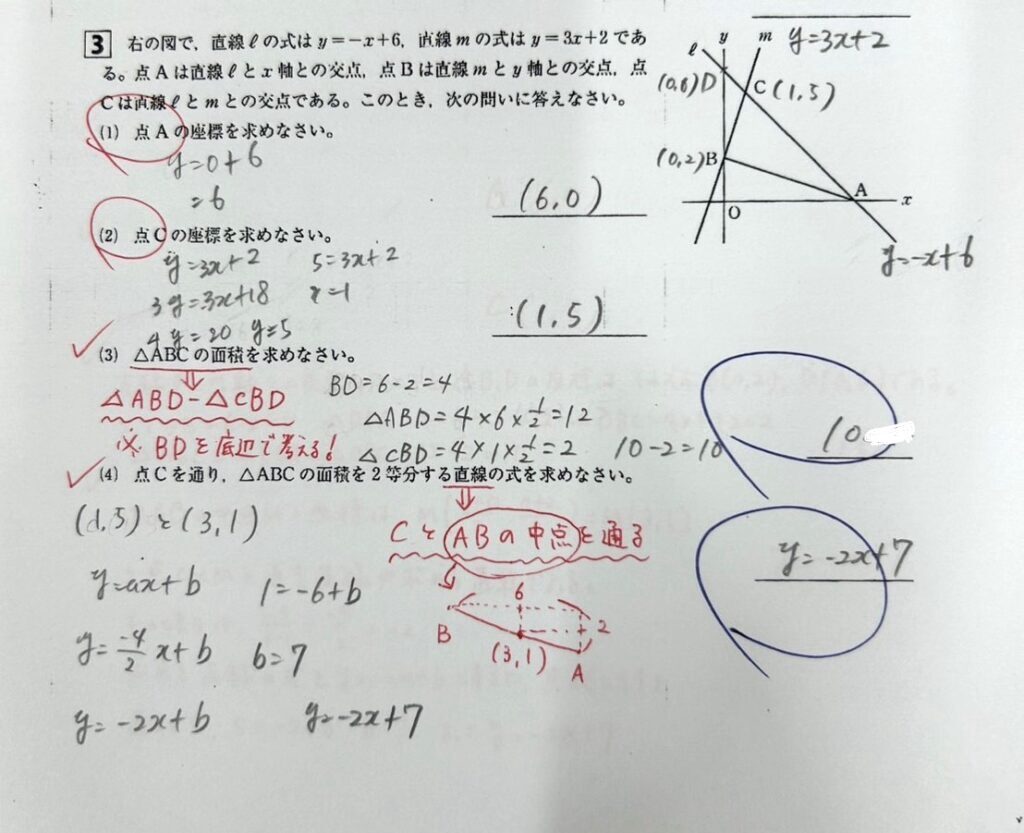 3 右の図で，直線ℓの式は y=−x+6，直線 m の式は y=3x+2 であ
る。点 A は直線ℓと x 軸との交点，点 B は直線 m と y 軸との交点，点
C は直線ℓと m との交点である。このとき，次の問いに答えなさい。
(1) 点 A の座標を求めなさい。
y=0+6
=6
(6,0)
(2) 点 C の座標を求めなさい。
y=3x+2 5=3x+2
3y=3x+18 x=1
4y=20 y=5
(1,5)
(3) △ABC の面積を求めなさい。
△ABD−△CBD
※ BDを底辺で考える!
BD=6−2=4
△ABD=4×6×1/2=12
△CBD=4×1×1/2=2 10−2=10
10
(4) 点 C を通り，△ABC の面積を2等分する直線の式を求めなさい。
CとABの中点を通る
(1,5)と(3,1)
y=ax+b 1=−6+b
y=−4/2x+b b=7
y=−2x+b y=−2x+7
y=−2x+7
6
B
2
(3,1)
A
ℓ y m y=3x+2
(0,6)D C(1,5)
(0,2)B
A
O x
y=−x+6